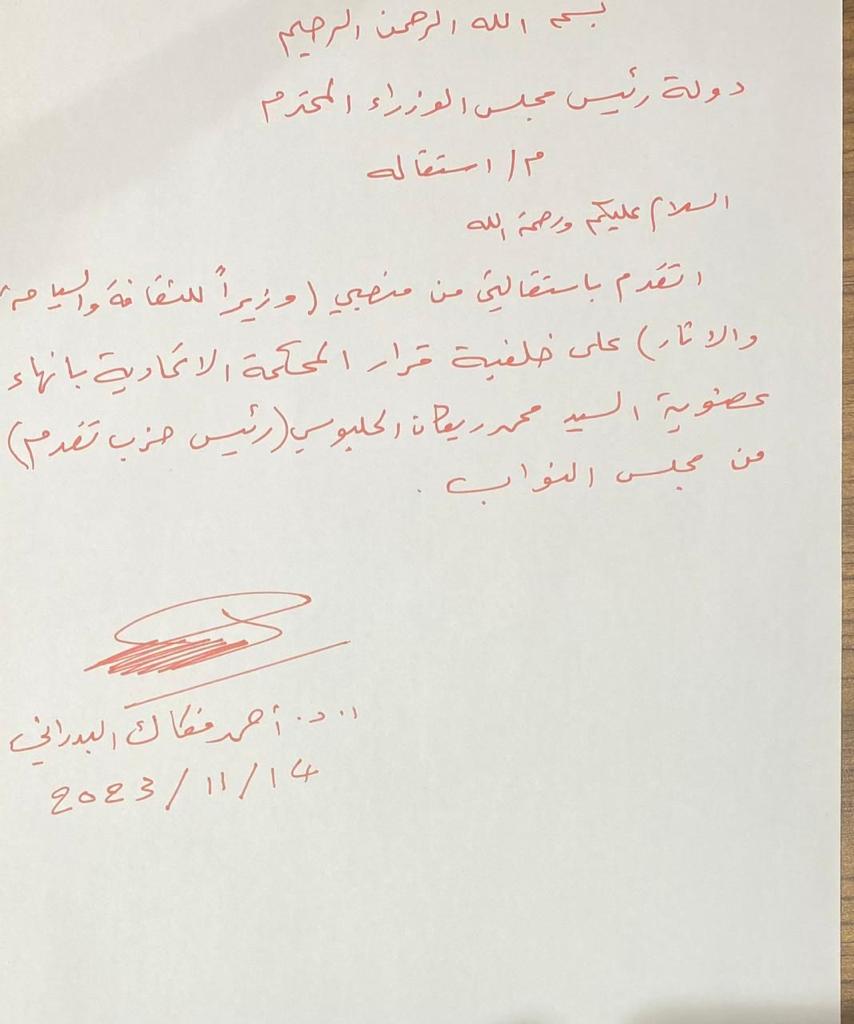 بسم الله الرحمن الرحيم
دولة رئيس مجلس الوزراء المحترم
م/ استقاله
السلام عليكم ورحمة الله
اتقدم باستقالتي من منصبي (وزيراً للثقافة والسياحة
والاثار) على خلفية قرار المحكمة الاتحادية بانهاء
عضوية السيد محمد ريكان الحلبوسي (رئيس حزب تقدم)
من مجلس النواب.
ا. د. أحمد فكاك البدراني
2023/11/14